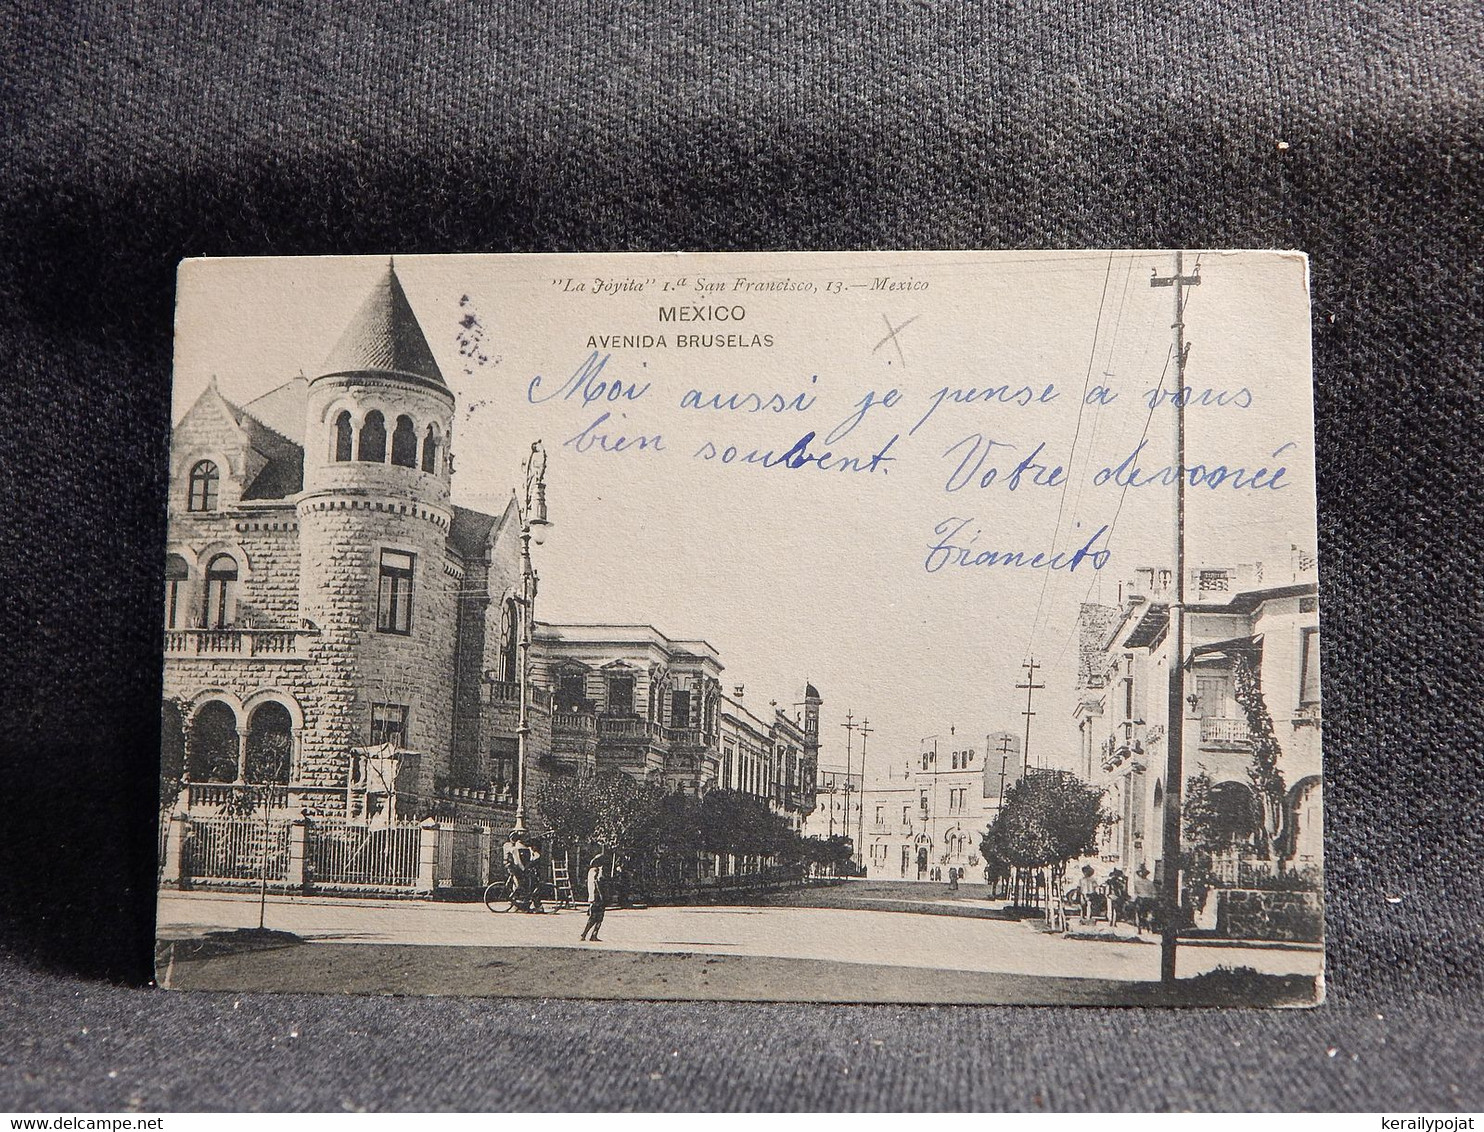 "La Jóyita" 1.ª San Francisco, 13.—Mexico
MEXICO
AVENIDA BRUSELAS
Moi aussi je pense à vous
bien souvent. Votre devouée
kerailypojat